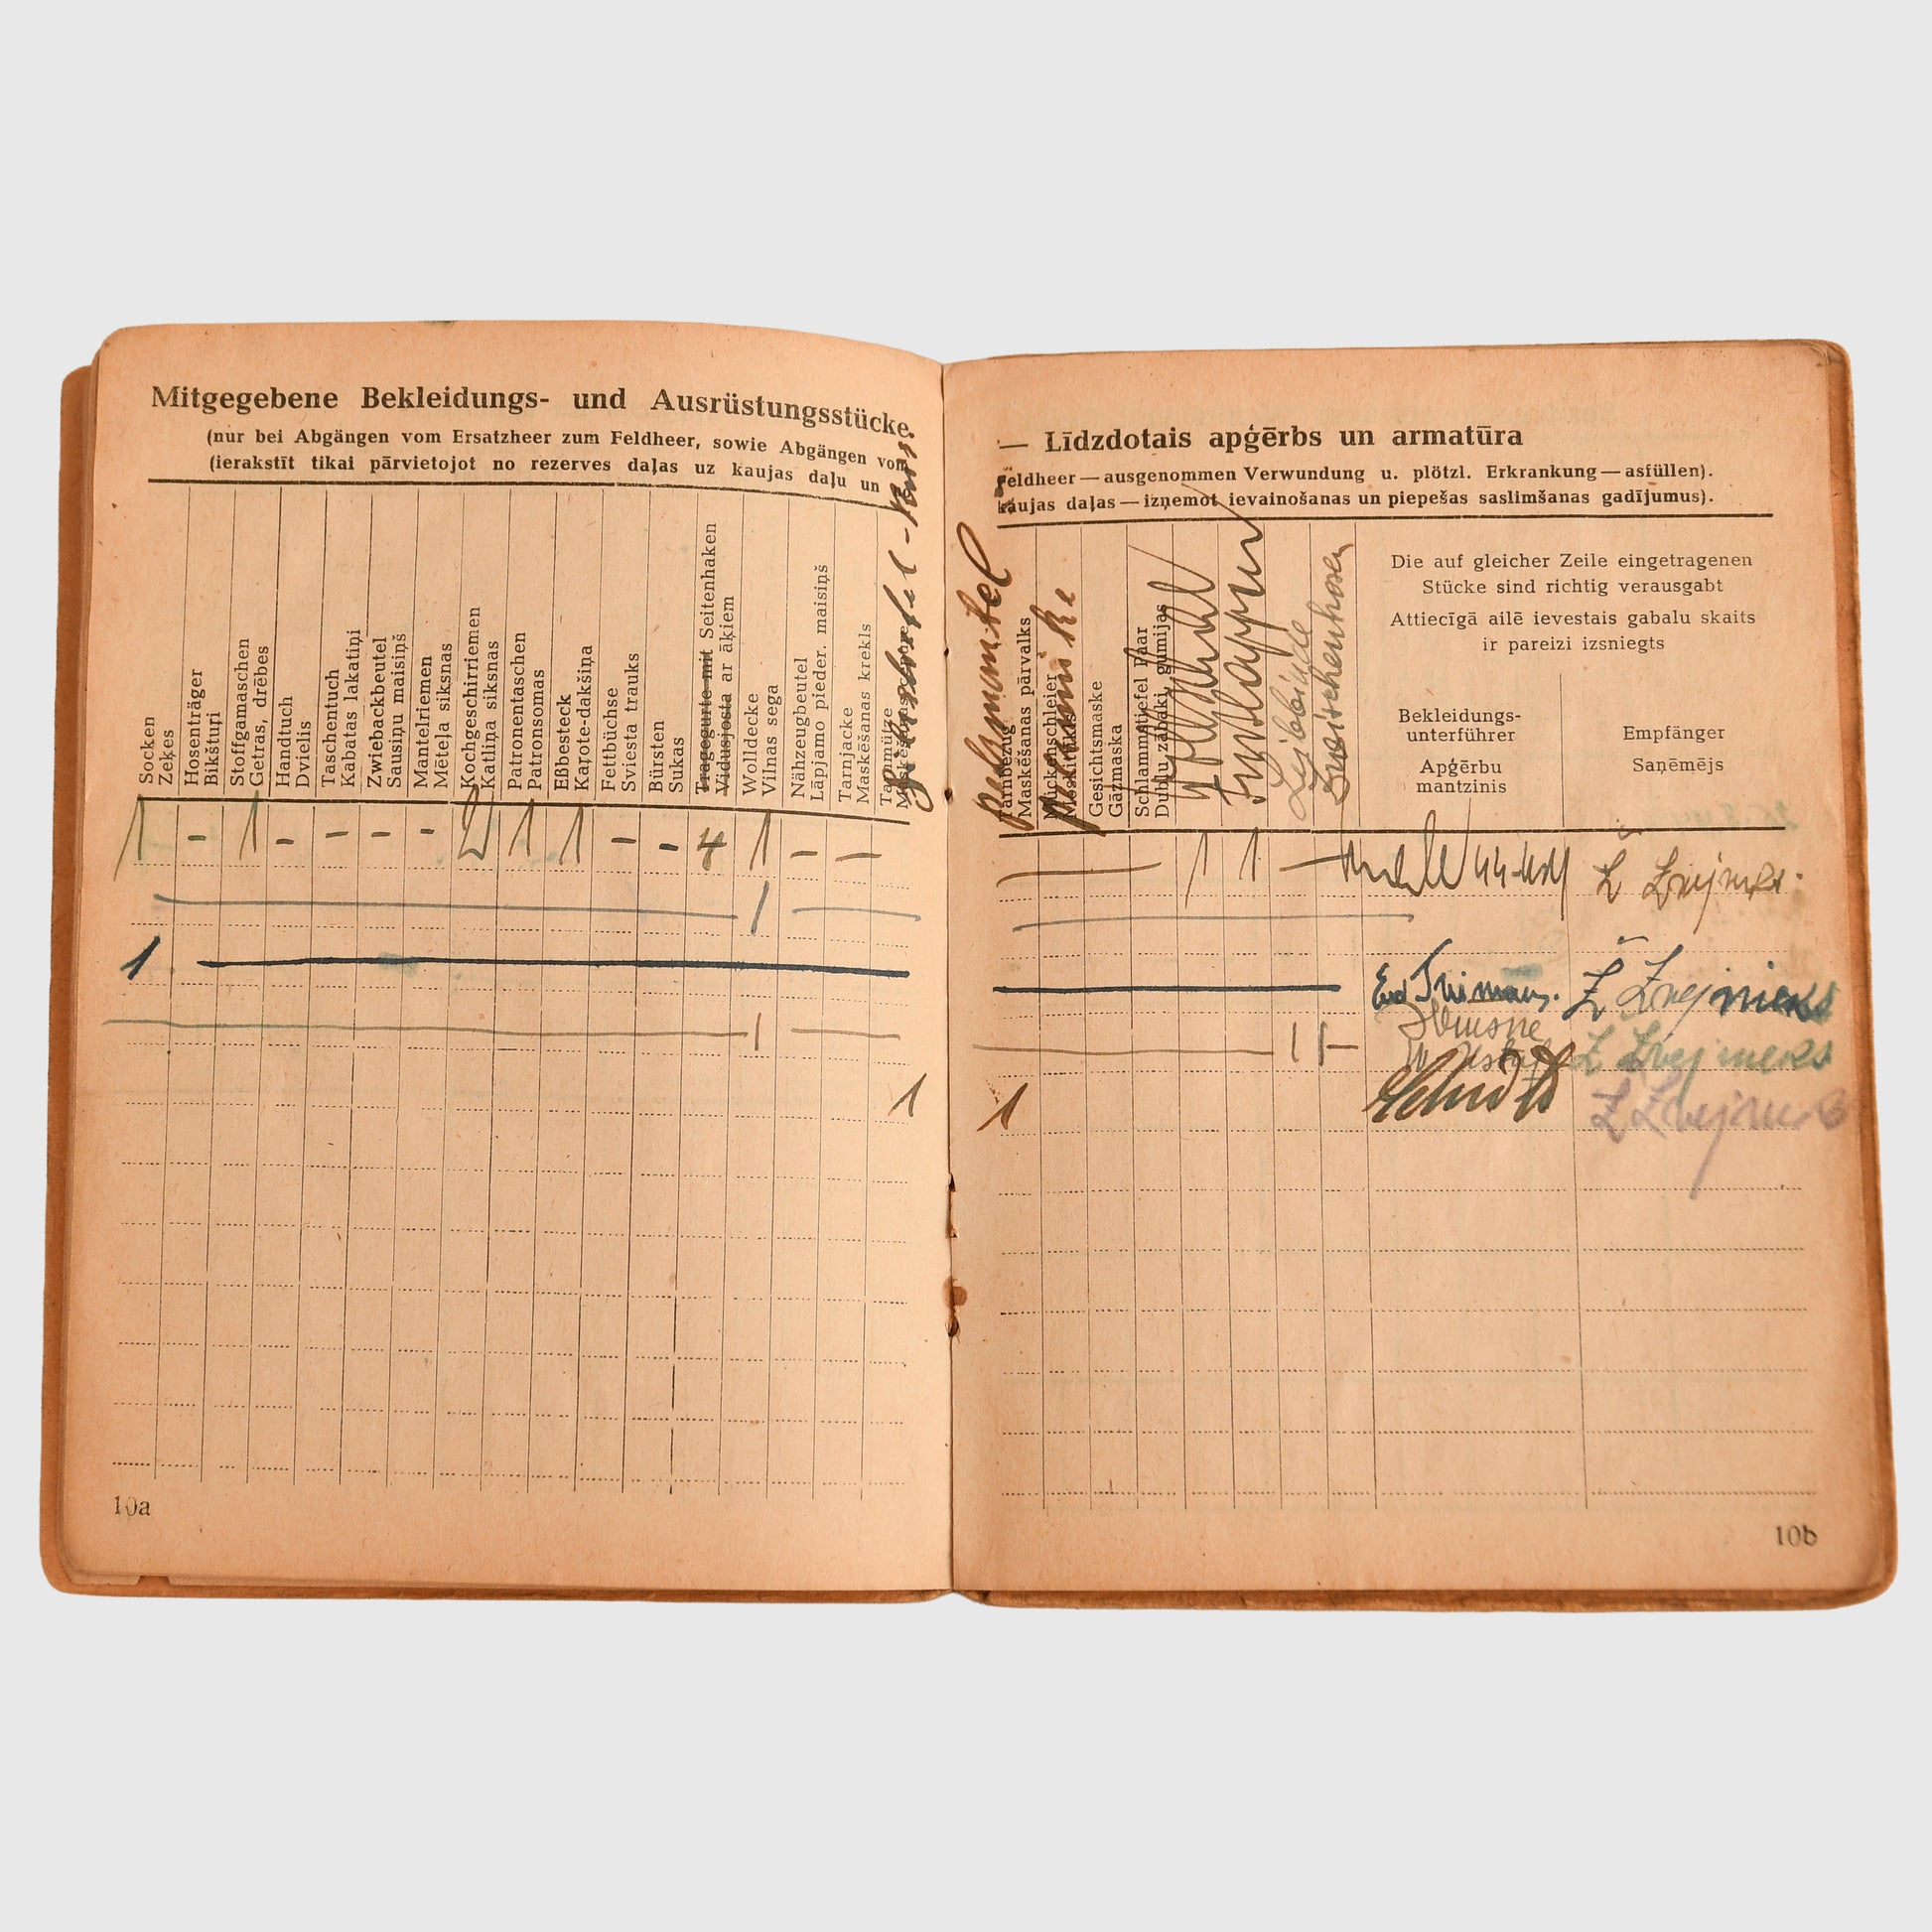 Mitgegebene Bekleidungs- und Ausrüstungsstücke
(nur bei Abgängen vom Ersatzheer zum Feldheer, sowie Abgängen vom
(ierakstīt tikai pārvietojot no rezerves daļas uz kaujas daļu un
Socken
Zeķes
Hosenträger
Bikšturi
Stoffgamaschen
Getras, drēbes
Handtuch
Dvielis
Taschentuch
Kabatas lakatiņi
Zwiebackbeutel
Sausiņu maisiņš
Mantelriemen
Mēteļa siksnas
Kochgeschirriemen
Katliņa siksnas
Patronentaschen
Patronsomas
Eßbesteck
Kaŗote-dakšiņa
Fettbüchse
Sviesta trauks
Bürsten
Sukas
Tragegurte mit Seitenhaken
Vidusjosta ar āķiem
Wolldecke
Vilnas sega
Nähzeugbeutel
Lāpjamo pieder. maisiņš
Tarnjacke
Maskēšanas krekls
Tarnmütze
1 - 1 - - - - 2 1 1 - - 4 1 - -
1
1
1
1
10a
— Līdzdotais apģērbs un armatūra
Feldheer — ausgenommen Verwundung u. plötzl. Erkrankung — asfüllen).
kaujas daļas — izņemot ievainošanas un piepešas saslimšanas gadījumus).
Pelzmantel
Tarnbezug
Maskēšanas pārvalks
Mückenschleier
Gesichtsmaske
Gāzmaska
Schlammstiefel Paar
Dubļu zābaki, gumijas
Fußlappen
Leibbinde
Drillichenhosen
Die auf gleicher Zeile eingetragenen
Stücke sind richtig verausgabt
Attiecīgā ailē ievestais gabalu skaits
ir pareizi izsniegts
Bekleidungs-
unterführer
Apģērbu
mantzinis
Empfänger
Saņēmējs
1 1 — Ž Zvejnieks.
Ž Zvejnieks
1 1 — Ž Zvejnieks
1 Ž Zvejnieks
10b